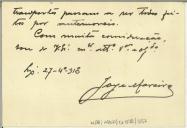 transportes passam a ser todos fei-
tos por automoveis.
Com muita consideração,
sou de V. Ex.
27-4-938
Jorge Moreira